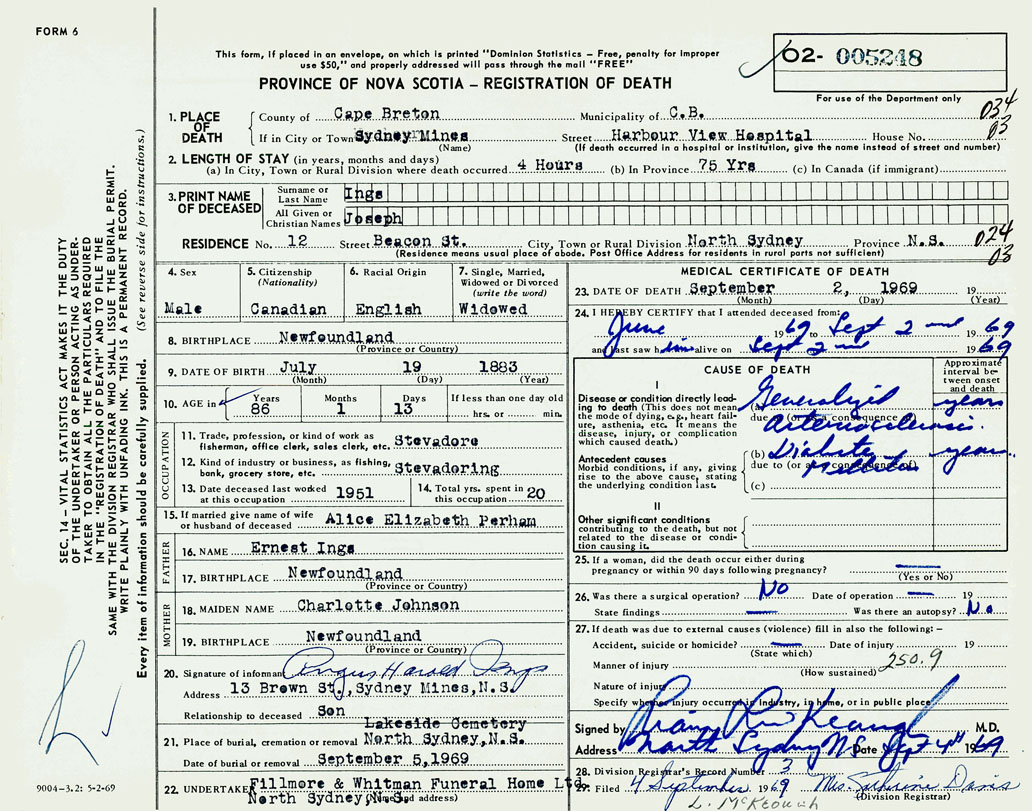 FORM 6
This form, if placed in an envelope, on which is printed "Dominion Statistics – Free, penalty for improper
use $50," and properly addressed will pass through the mail "FREE"
PROVINCE OF NOVA SCOTIA – REGISTRATION OF DEATH
02- 005248
For use of the Department only
1. PLACE OF DEATH County of Cape Breton Municipality of C.B. 034
If in City or Town Sydney Mines Street Harbour View Hospital House No. 03
(Name) (If death occurred in a hospital or institution, give the name instead of street and number)
2. LENGTH OF STAY (in years, months and days)
(a) In City, Town or Rural Division where death occurred 4 Hours (b) In Province 75 Yrs (c) In Canada (if immigrant)
3. PRINT NAME OF DECEASED Surname or Last Name Ings
All Given or Christian Names Joseph
RESIDENCE No. 12 Street Beacon St. City, Town or Rural Division North Sydney Province N.S. 024
(Residence means usual place of abode. Post Office Address for residents in rural parts not sufficient) 03
4. Sex Male
5. Citizenship (Nationality) Canadian
6. Racial Origin English
7. Single, Married, Widowed or Divorced (write the word) Widowed
8. BIRTHPLACE Newfoundland
(Province or Country)
9. DATE OF BIRTH July 19 1883
(Month) (Day) (Year)
10. AGE in Years 86 Months 1 Days 13 If less than one day old hrs. or min.
OCCUPATION
11. Trade, profession, or kind of work as
fisherman, office clerk, sales clerk, etc. Stevadore
12. Kind of industry or business, as fishing,
bank, grocery store, etc. Stevadoring
13. Date deceased last worked at this occupation 1951 14. Total yrs. spent in this occupation 20
15. If married give name of wife
or husband of deceased Alice Elizabeth Perham
FATHER
16. NAME Ernest Ings
17. BIRTHPLACE Newfoundland
(Province or Country)
MOTHER
18. MAIDEN NAME Charlotte Johnson
19. BIRTHPLACE Newfoundland
(Province or Country)
20. Signature of informant Angus Harold Ings
Address 13 Brown St., Sydney Mines, N.S.
Relationship to deceased Son
Lakeside Cemetery
21. Place of burial, cremation or removal North Sydney, N.S.
Date of burial or removal September 5, 1969
22. UNDERTAKER Fillmore & Whitman Funeral Home Ltd
North Sydney, N.S. (Name and address)
MEDICAL CERTIFICATE OF DEATH
23. DATE OF DEATH September 2, 1969 19
(Month) (Day) (Year)
24. I HEREBY CERTIFY that I attended deceased from:
June 1969 to Sept 2nd 1969
and last saw him alive on Sept 2nd 1969
CAUSE OF DEATH
Approximate interval between onset and death
I
Disease or condition directly leading to death (This does not mean the mode of dying, e.g., heart failure, asthenia, etc. It means the disease, injury, or complication which caused death.)
(a) Generalized years
due to (or as a consequence of)
arteriosclerosis.
Antecedent causes
Morbid conditions, if any, giving rise to the above cause, stating the underlying condition last.
(b) Diabetes years
due to (or as a consequence of)
Mellitus
(c)
II
Other significant conditions
contributing to the death, but not related to the disease or condition causing it.
25. If a woman, did the death occur either during
pregnancy or within 90 days following pregnancy? —
(Yes or No)
26. Was there a surgical operation? No Date of operation — 19
State findings — Was there an autopsy? No
27. If death was due to external causes (violence) fill in also the following: –
Accident, suicide or homicide? — Date of injury 19
(State which)
Manner of injury 250.9
(How sustained)
Nature of injury
Specify whether injury occurred in industry, in home, or in public place
Signed by M.D.
Address North Sydney NS Date Sept 4th 1969
28. Division Registrar's Record Number 3
29. Filed 4 September 1969 Mrs. Davis
(Division Registrar)
L. McKeough
SEC. 14 – VITAL STATISTICS ACT MAKES IT THE DUTY
OF THE UNDERTAKER OR PERSON ACTING AS UNDER-
TAKER TO OBTAIN ALL THE PARTICULARS REQUIRED
IN THE "REGISTRATION OF DEATH" AND TO FILE THE
SAME WITH THE DIVISION REGISTRAR WHO SHALL ISSUE THE BURIAL PERMIT.
WRITE PLAINLY WITH UNFADING INK. THIS IS A PERMANENT RECORD.
Every item of information should be carefully supplied. (See reverse side for instructions.)
9004–3.2: 5-2-69